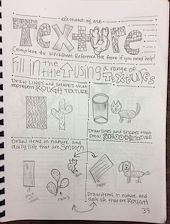 elements of art
Texture
Complete the worksheet. Reference the form if you need help!
Fill in the title using a range of
textures
Draw lines and shapes that
represent ROUGH TEXTURE
Draw lines and shapes that
Draw items in nature and
daily life that are Smooth
Draw items in nature and
daily life that are Rough
39